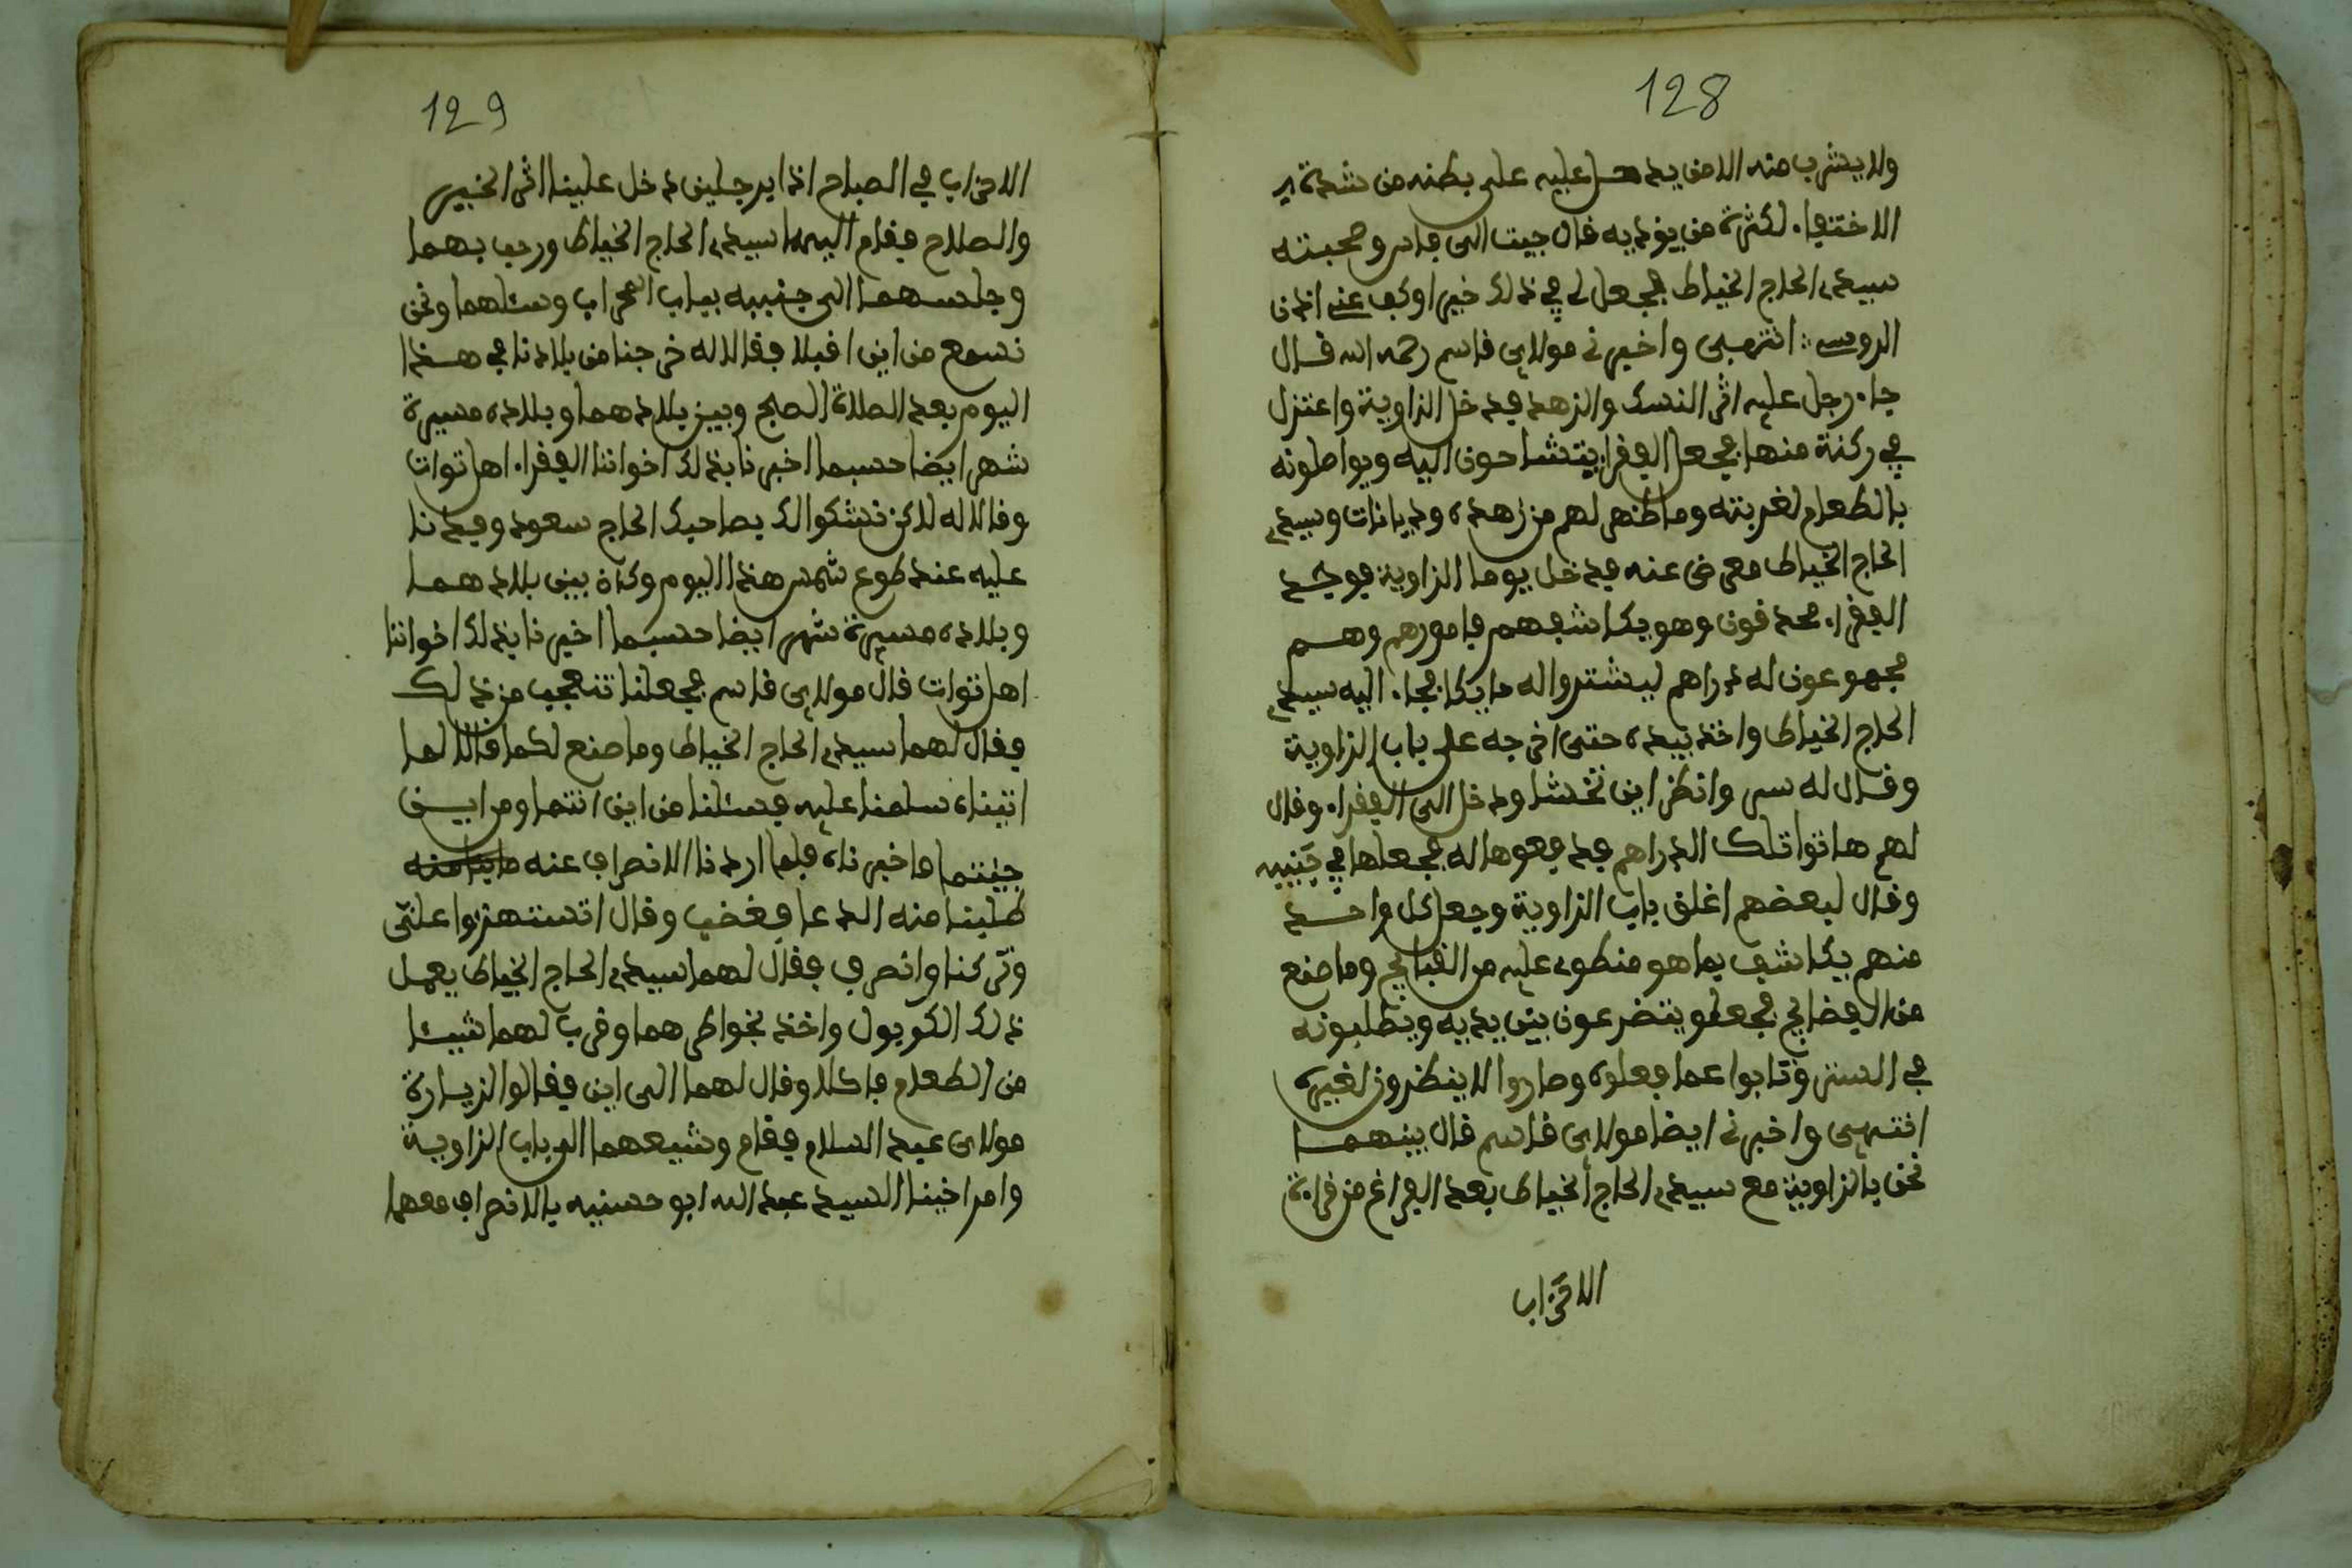 128
ولا يشرب منه الا من يدخل عليه على بطنه من شدة
الاختفاء لكثرة من يوذيه قال جيت الى فاس وصحبته
سيدي الحاج الخياط فجعل لي في ذلك خيرا وكف عني اذن
الروس انتهى واخبرني مولاي قاسم رحمه الله قال
جاء رجل عليه اثر النسك والزهد فدخل الزاوية واعتزل
في ركنة منها فجعل الفقرا يتشاحون اليه ويواطونه
بالطعام لغربته وما ظهر لهم من زهده وديانات وسيدي
الحاج الخياط معرض عنه فدخل يوما الزاوية فوجد
الفقراء محدقون وهو يكاشفهم بامورهم وهم
مجموعون له دراهم ليشتروا له ما ياكل فجاء اليه سيدي
الحاج الخياط واخذ بيده حتى اخرجه على باب الزاوية
وقال له سر وانظر اين تخشا ودخل الى الفقراء وقال
لهم هاتوا تلك الدراهم فدفعوها له فجعلها في جَيبه
وقال لبعضهم اغلق باب الزاوية وجعل كل واحد
منهم يكاشف بما هو منطوي عليه من القبايح وما صنع
من الفضايح فجعلو يتضرعون بين يديه ويطلبونه
في الستر وتابوا عما فعلوه وصاروا لا ينظرون لغيره
انتهى واخبرني ايضا مولاي قاسم قال بينهما
نحن بالزاوية مع سيدي الحاج الخياط بعد الفراغ من قراءة
الاحزاب
129
الاحزاب في الصباح اذا برجلين دخل علينا اثر الخير
والصلاح فقام اليهما سيدي الحاج الخياط ورحب بهما
وجلسهما الى جنبيه بباب المحراب وسئلهما ونحن
نسمع من اين اقبلا فقالا له خرجنا من بلادنا في هذا
اليوم بعد الصلاة الصبح وبين بلادهما وبلاده مسيرة
شهر ايضا حسبما اخبرنا بذلك اخواننا الفقراء اهل توات
وقالا له لاكن نشكوا لك بصاحبك الحاج سعود وفدنا
عليه عند طوع شمس هذا اليوم وكان بين بلادهما
وبلاده مسيرة شهر ايضا حسبما اخبرنا بذلك اخواننا
اهل توات قال مولاي قاسم فجعلنا نتعجب من ذلك
فقال لهما سيدي الحاج الخياط وما صنع لكما قالا لما
اتيناه سلمنا عليه فسئلنا من اين انتما ومن اين
جيتما فاخبرناه فلما اردنا الانصراف عنه
طلبنا منه الدعا فغضب وقال اتستهزوا علىّ
وتركنا وانصرف فقال لهما سيدي الحاج الخياط يعمل
ذلك الكوبول واخذ بخواطرهما وقرب لهما شيئا
من الطعام فاكلا وقال لهما الى اين فقالوا لزيارة
مولاي عبد السلام فقام وشيعهما الى باب الزاوية
وامر اخينا السيد عبد الله ابو حسنيه بالانصراف معهما